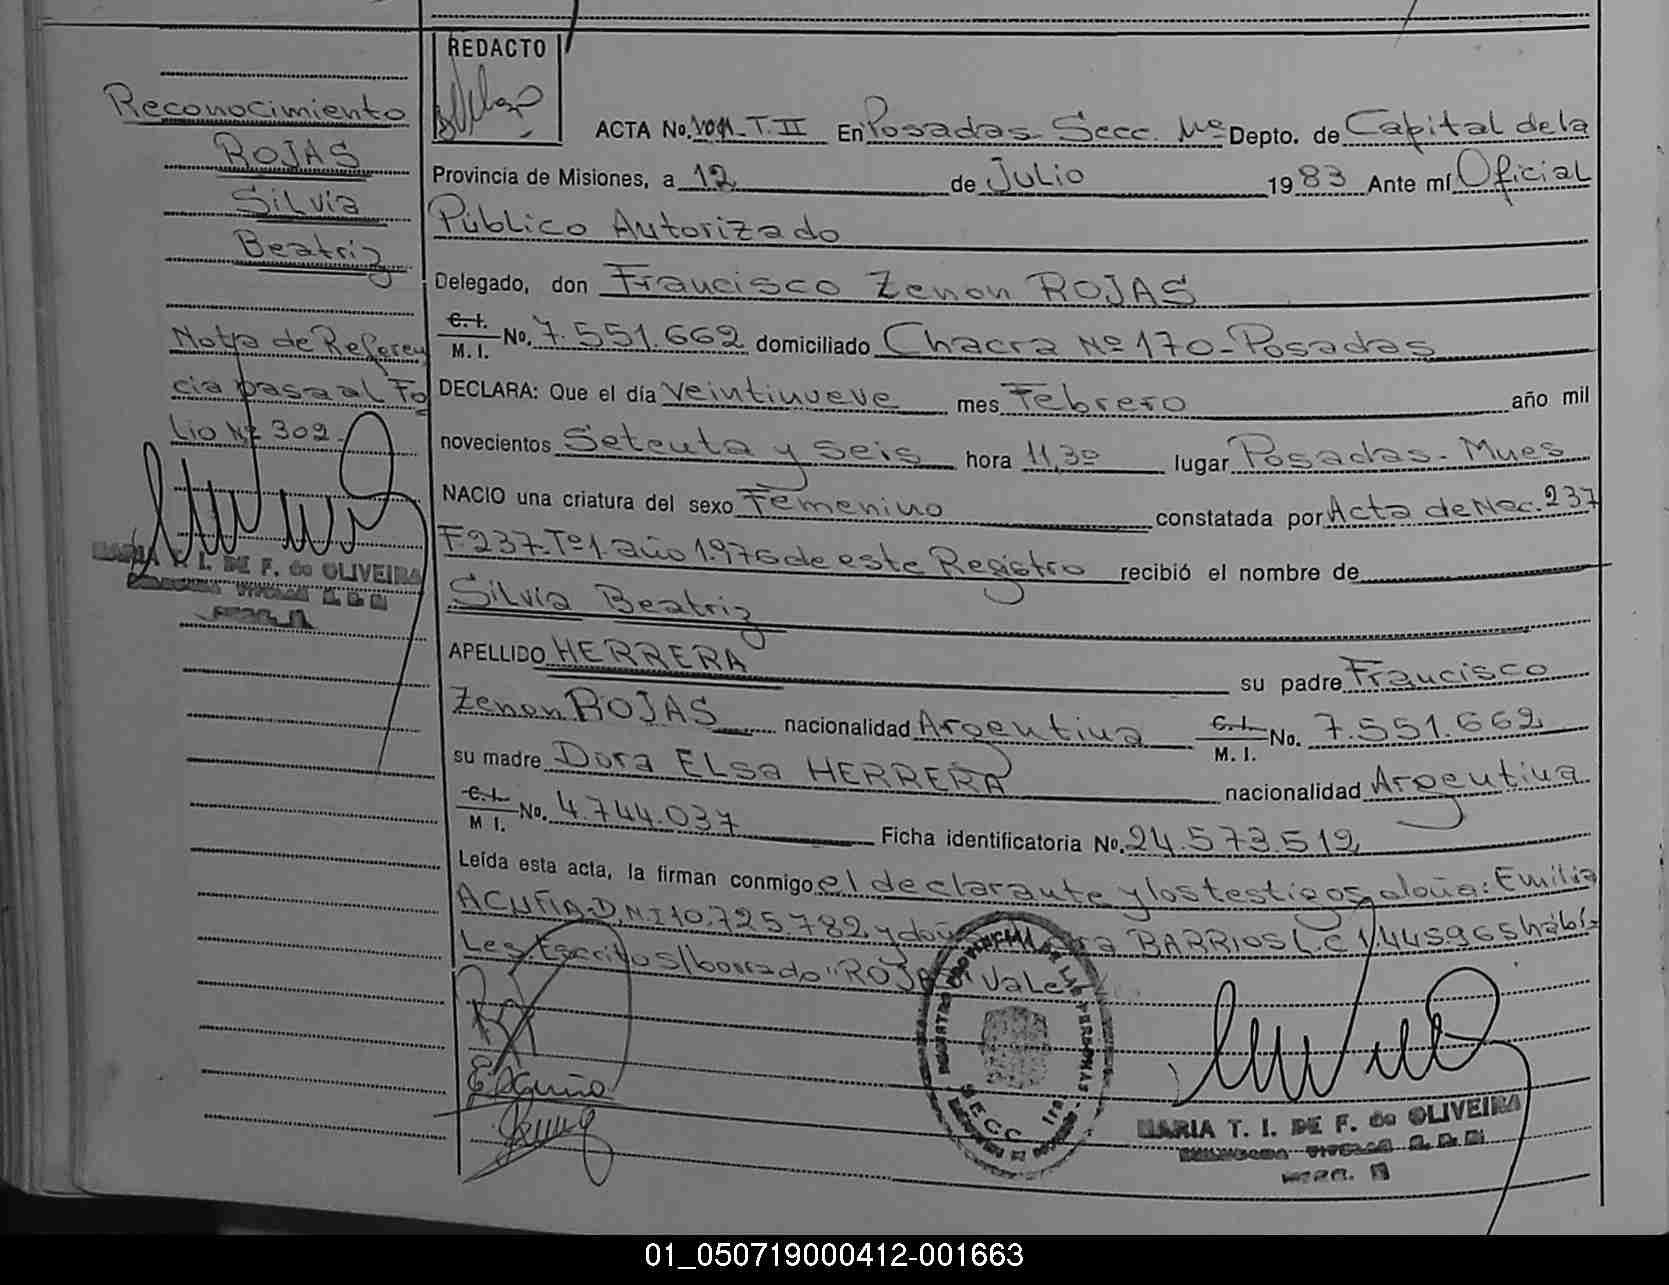 Reconocimiento
ROJAS
Silvia
Beatriz
Nota de Referen
cia pasa al Fo
lio Nº 302.
MARIA T. I. DE F. do OLIVEIRA
REDACTO
ACTA No. T. II En Posadas Secc. Depto. de Capital de la
Provincia de Misiones, a 12 de Julio 1983 Ante mí Oficial
Público Autorizado
Delegado, don Francisco Zenon ROJAS
C.I.
M. I. No. 7.551.662 domiciliado Chacra Nº 170-Posadas
DECLARA: Que el día veintinueve mes Febrero año mil
novecientos Setenta y seis hora 11,30 lugar Posadas-Mnes
NACIO una criatura del sexo Femenino constatada por Acta de Nac. 237
F237.Tº1.año 1.976 de este Registro recibió el nombre de
Silvia Beatriz
APELLIDO HERRERA su padre Francisco
Zenon ROJAS nacionalidad Argentina C.I.
M. I. No. 7.551.662
su madre Dora ELsa HERRERA nacionalidad Argentina
C.I.
M I. No. 4.744.037 Ficha identificatoria No. 24.573.512
Leída esta acta, la firman conmigo el declarante y los testigos, doña: Emilia
ACUÑA-D.N.I 10.725.782 y doña BARRIOS L.C 1.445.965 hábi-
Les Escrito s/borrado "ROJAS" vaLe
E Acuña
REGISTRO PROVINCIAL DE LAS PERSONAS
SECC. 1ra
MARIA T. I. DE F. do OLIVEIRA
01_050719000412-001663